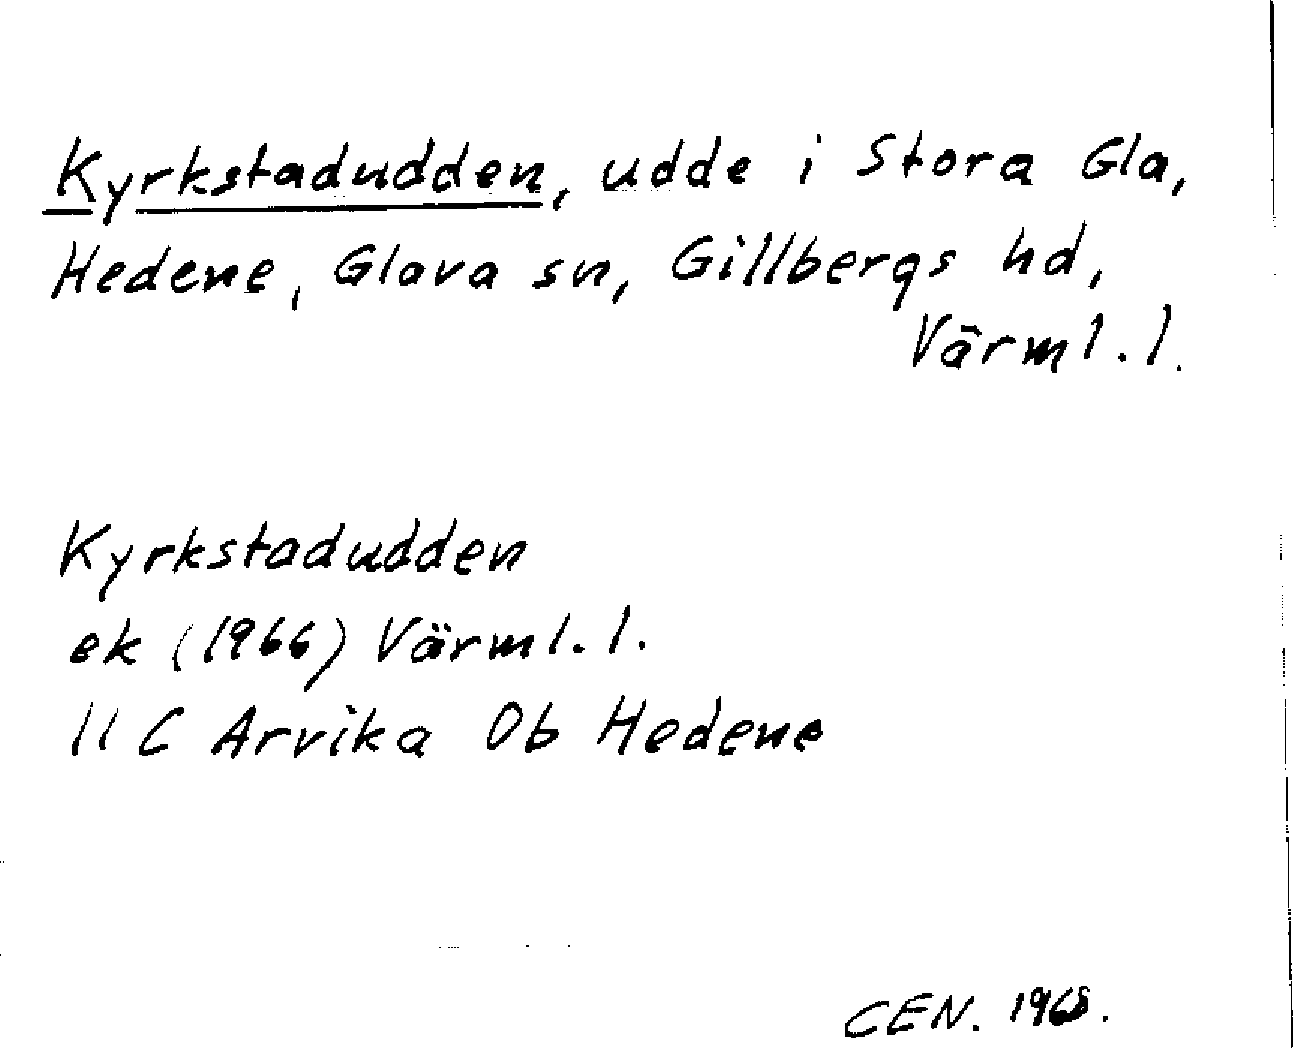 Kyrkstadudden, udde i Stora Gla,
Hedene, Glava sn, Gillbergs hd,
Värml. l.
Kyrkstadudden
ek (1966) Värml. l.
11 C Arvika 0b Hedene
CEN. 1968.